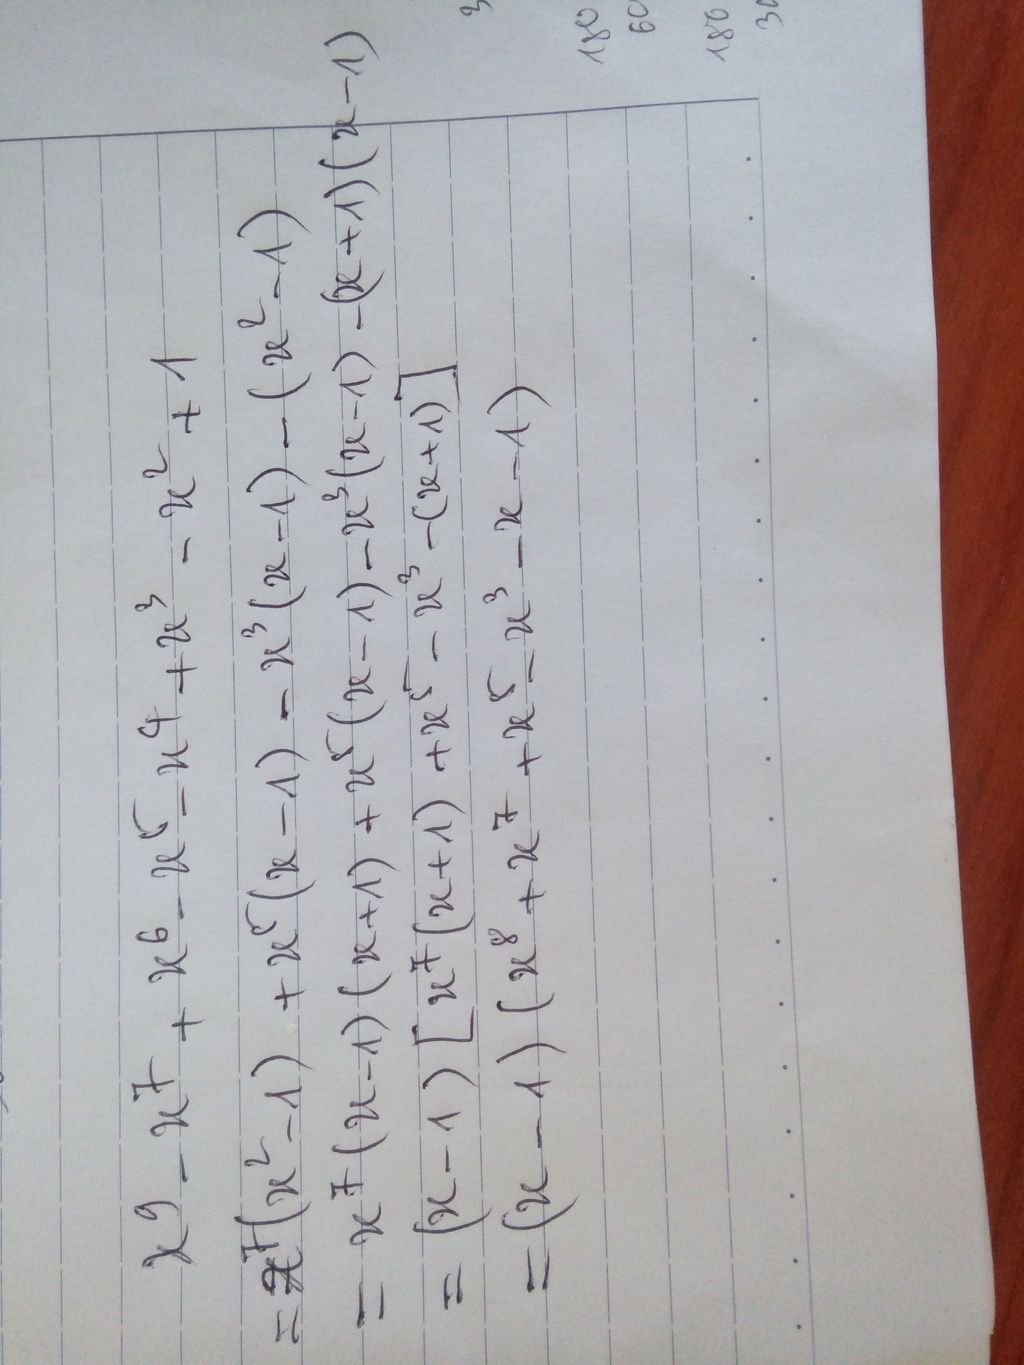 x⁹ - x⁷ + x⁶ - x⁵ - x⁴ + x³ - x² + 1
= x⁷(x² - 1) + x⁵(x - 1) - x³(x - 1) - (x² - 1)
= x⁷(x - 1)(x + 1) + x⁵(x - 1) - x³(x - 1) - (x + 1)(x - 1)
= (x - 1)[x⁷(x + 1) + x⁵ - x³ - (x + 1)]
= (x - 1)(x⁸ + x⁷ + x⁵ - x³ - x - 1)
3
180
60
180
30